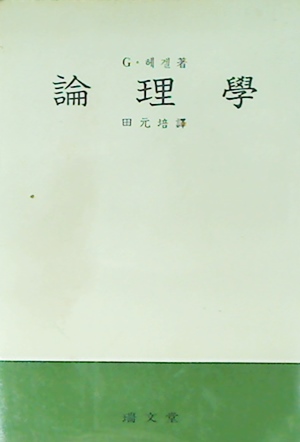 G·헤겔著
論理學
田元培譯
瑞文堂